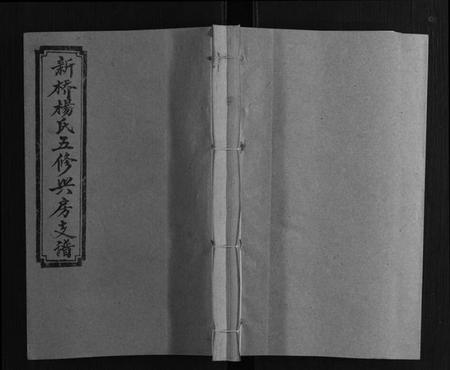 新桥楊氏五修兴房支譜